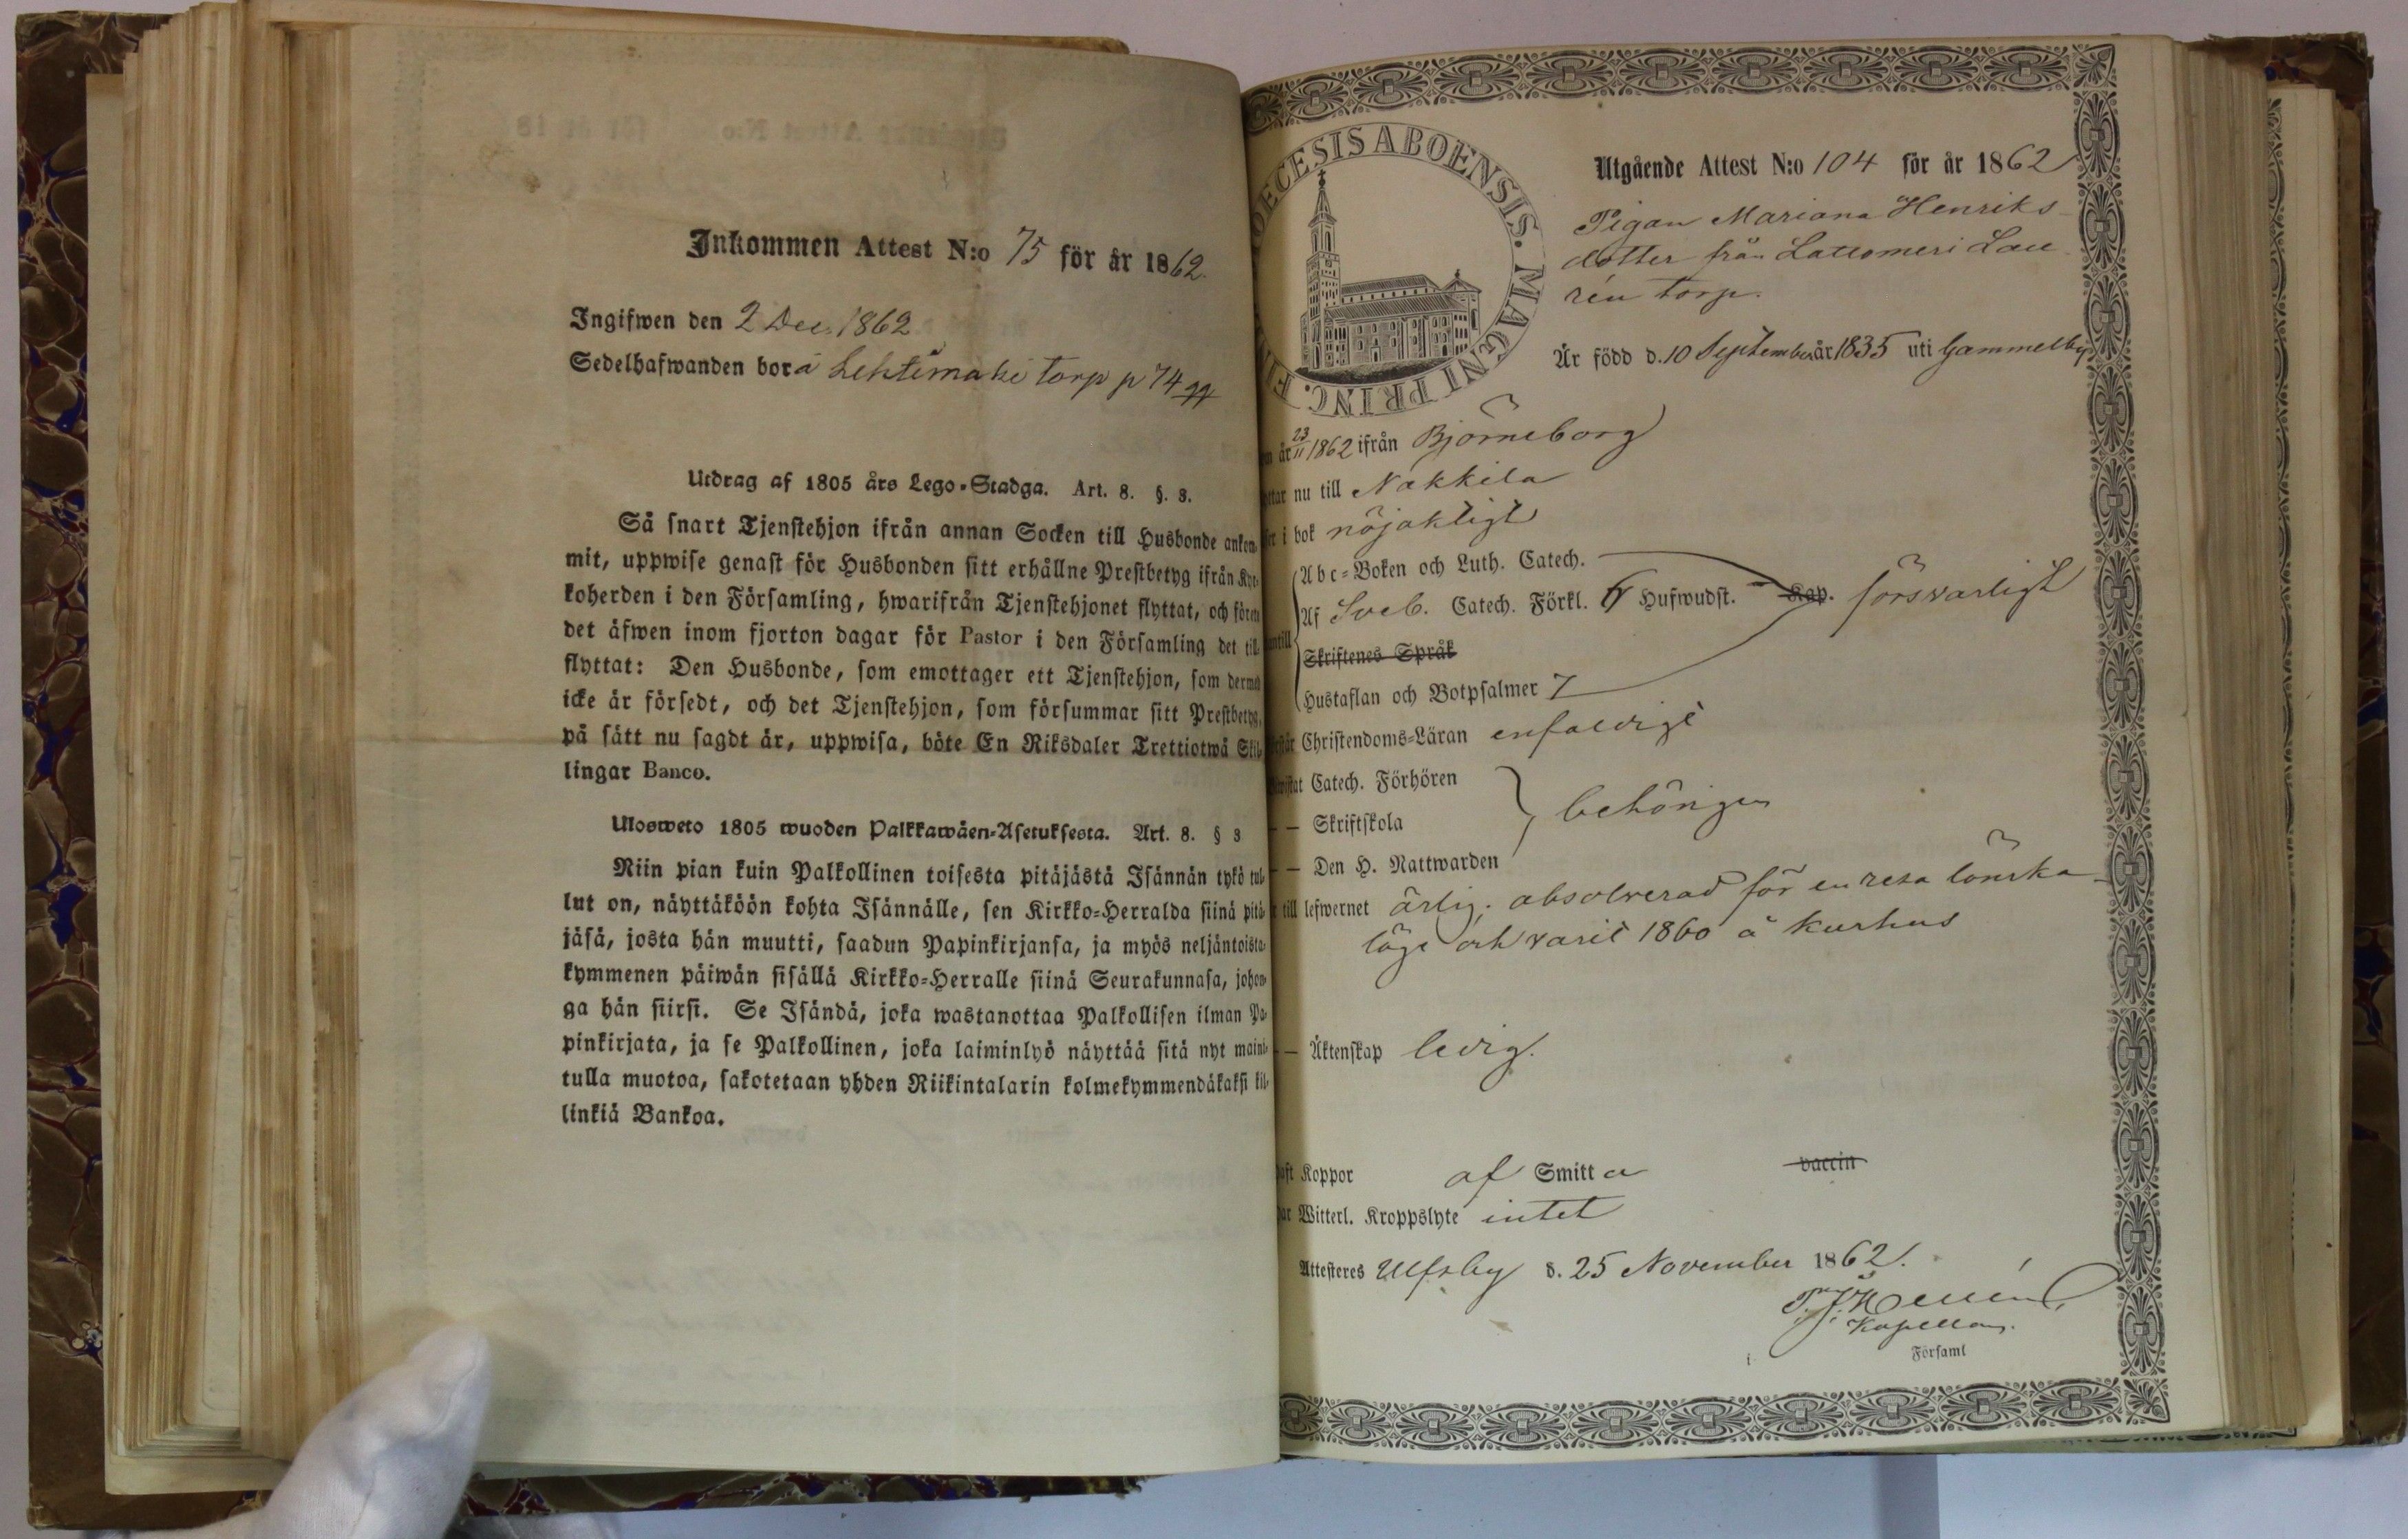 Inkommen Attest N:o 75 för år 1862.
Ingifwen den 2 Dec. 1862
Sedelhafwanden bor å Lehtimäki torp p 74
Utdrag af 1805 års Lego-Stadga. Art. 8. §. 8.
Så snart Tjenstehjon ifrån annan Socken till Husbonde ankom-
mit, uppwise genast för Husbonden sitt erhållne Prestbetyg ifrån Kyr-
koherden i den Församling, hwarifrån Tjenstehjonet flyttat, och förete
det äfwen inom fjorton dagar för Pastor i den Församling det till
flyttat: Den Husbonde, som emottager ett Tjenstehjon, som dermed
icke är försedt, och det Tjenstehjon, som försummar sitt Prestbetyg,
på sätt nu sagdt är, uppwisa, böte En Riksdaler Trettiotwå Skil-
lingar Banco.
Ulosweto 1805 wuoden Palkkawäen-Asetuksesta. Art. 8. § 8
Niin pian kuin Palkollinen toisesta pitäjästä Isännän tykö tul-
lut on, näyttäköön kohta Isännälle, sen Kirkko-Herralda siinä pitä-
jäsä, josta hän muutti, saadun Papinkirjansa, ja myös neljäntoista-
kymmenen päiwän sisällä Kirkko-Herralle siinä Seurakunnasa, johon-
ga hän siirsi. Se Isändä, joka wastanottaa Palkollisen ilman Pa-
pinkirjata, ja se Palkollinen, joka laiminlyö näyttää sitä nyt maini-
tulla muotoa, sakotetaan yhden Riikintalarin kolmekymmendäkaksi kil-
linkiä Bankoa.
OECESIS ABOENSIS. MAGNI PRINC. FI
Utgående Attest N:o 104 för år 1862
Pigan Mariana Henriks-
dotter från Lattomeri Lau-
rén torp.
Är född d. 10 September år 1835 uti Gammelby
år 23/11 1862 ifrån Björneborg
nu till Nakkila
i bok nöjaktigt
Abc-Boken och Luth. Catech.
Af Sveb. Catech. Förkl. 6 Hufwudst. Kap. försvarligt
Skriftenes Språk
Hustaflan och Botpsalmer 7
Christendoms-Läran enfaldigt
Catech. Förhören
— Skriftskola behörigen
— Den H. Nattwarden
till lefwernet ärlig; absolverad för en resa lönska-
läge och varit 1860 å Kurhus
— Äktenskap ledig.
Koppor af Smitta vaccin
Witterl. Kroppslyte intet
Attesteres Ulfsby d. 25 November 1862.
Kapellan.
i Församl